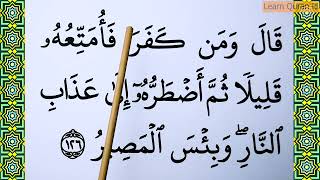 Learn Quran
قَالَ وَمَن كَفَرَ فَأُمَتِّعُهُۥ
قَلِيلًا ثُمَّ أَضْطَرُّهُۥٓ إِلَىٰ عَذَابِ
ٱلنَّارِ ۖ وَبِئْسَ ٱلْمَصِيرُ ١٢٦